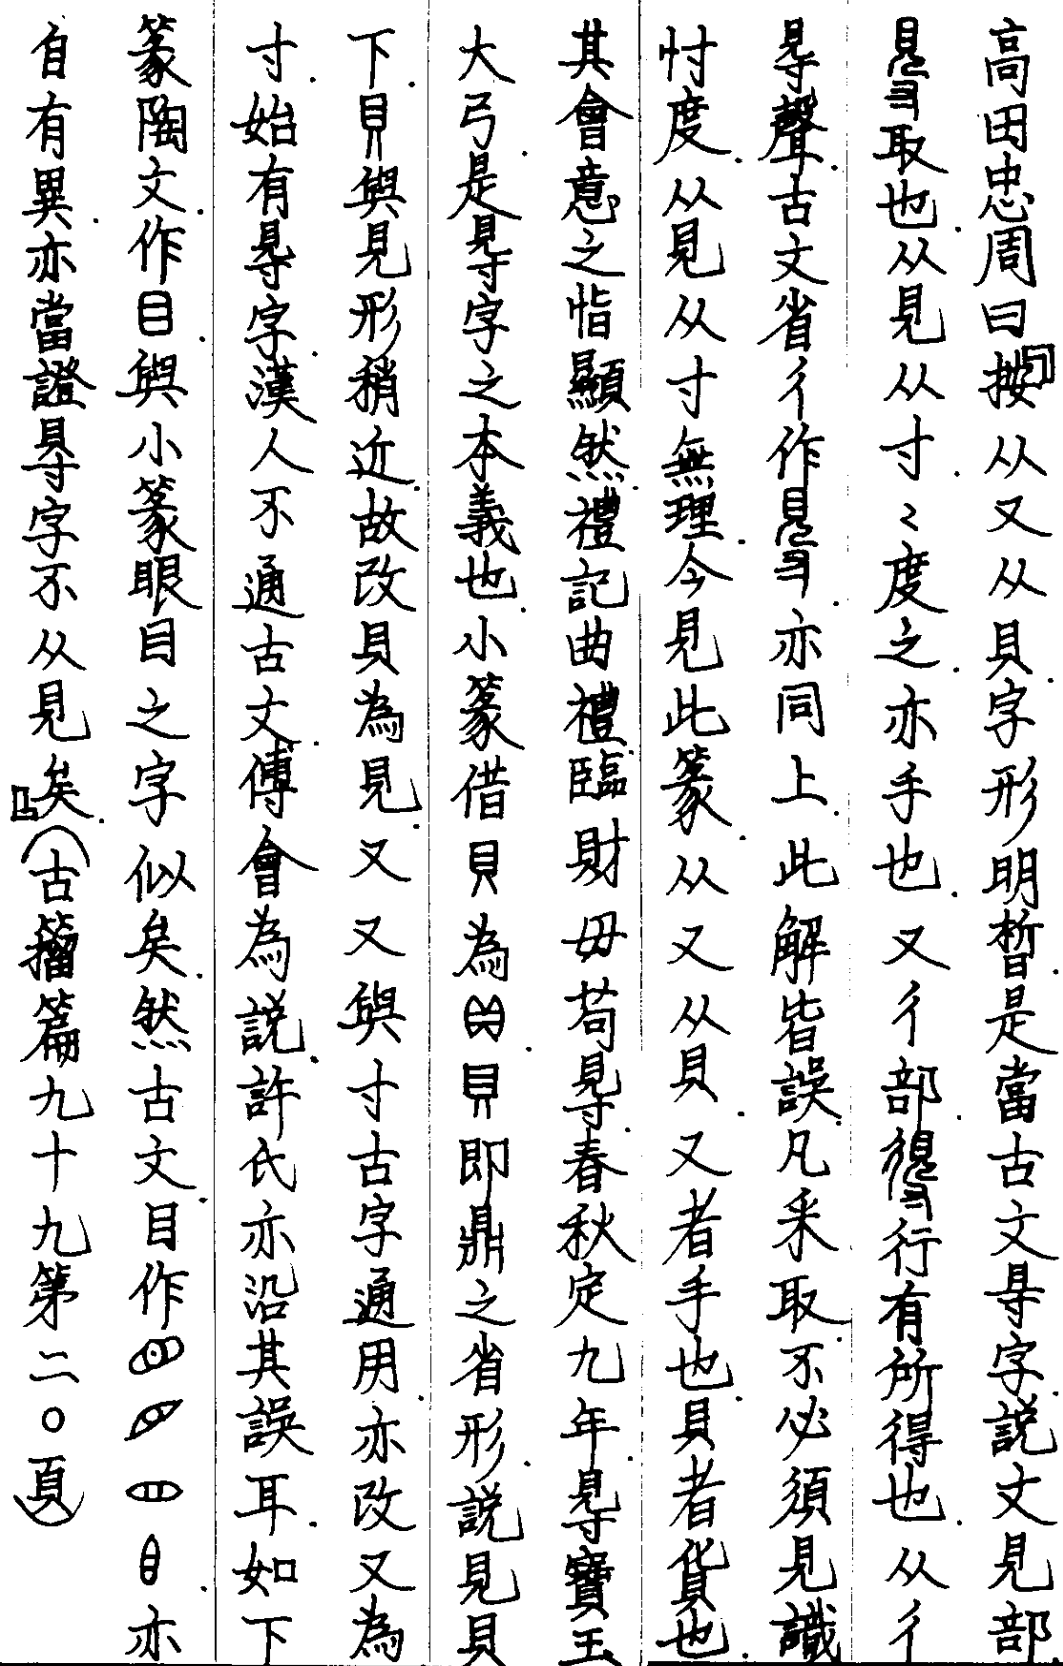 高田忠周曰「按从又从貝字形明晳是當古文㝵字説文見部
𧠼取也从見从寸.寸度之亦手也又彳部得行有所得也.从彳
㝵聲古文省彳作𧠼亦同上此解皆誤凡釆取不必須見識
忖度.从見从寸無理.今見此篆.从又从貝.又者手也.貝者貨也.
其會意之恉顯然禮記曲禮.臨財毋苟㝵.春秋定九年.㝵寶玉
大弓.是㝵字之本義也.小篆借貝為.貝即鼎之省形.説見貝
下.貝與見形稍近.故改貝為見.又又與寸古字通用.亦改又為
寸.始有㝵字.漢人不通古文.傅會為説.許氏亦沿其誤耳.如下
篆陶文.作目.與小篆眼目之字似矣.然古文目作.亦
自有異.亦當證㝵字不从見矣.」(古籀篇九十九第二〇頁)